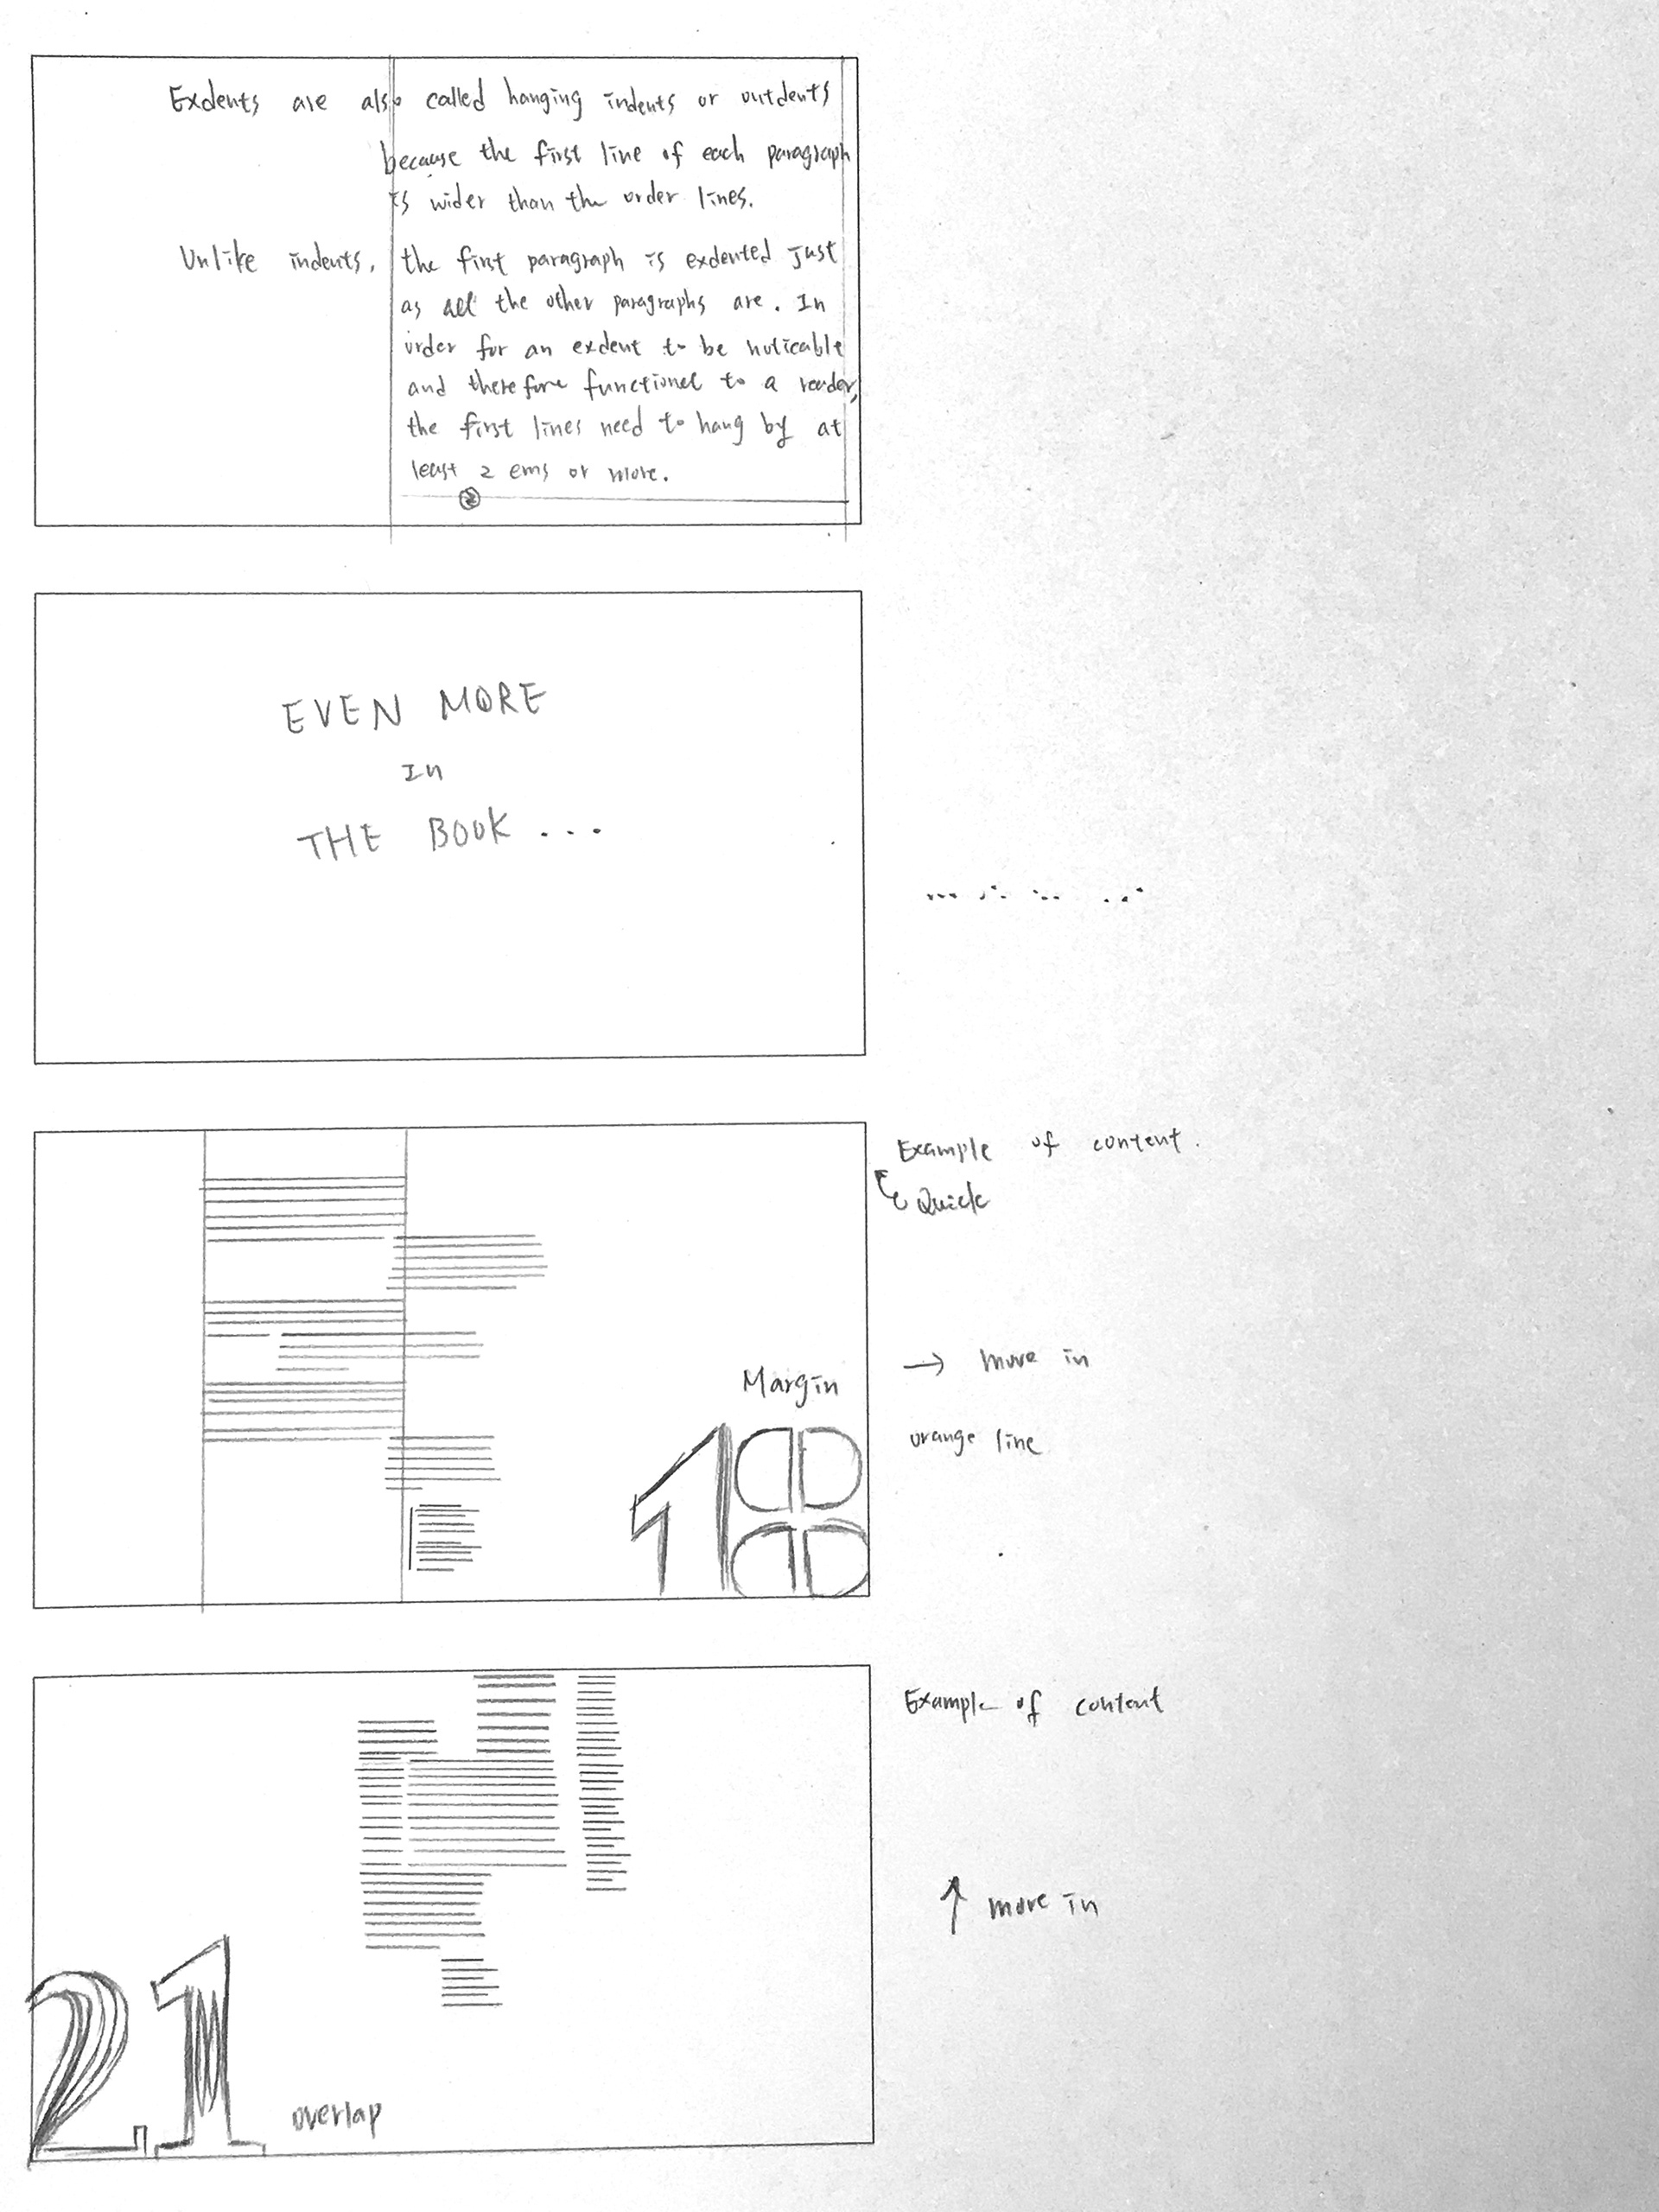 Exdents are also called hanging indents or outdents
because the first line of each paragraph
is wider than the order lines.
Unlike indents, the first paragraph is exdented just
as all the other paragraphs are. In
order for an exdent to be noticable
and therefore functional to a reader,
the first lines need to hang by at
least 2 ems or more.
2
EVEN MORE
In
THE BOOK ...
Example of content.
Quick
Margin
→ move in
18
orange line
Example of content
↑ move in
21
overlap